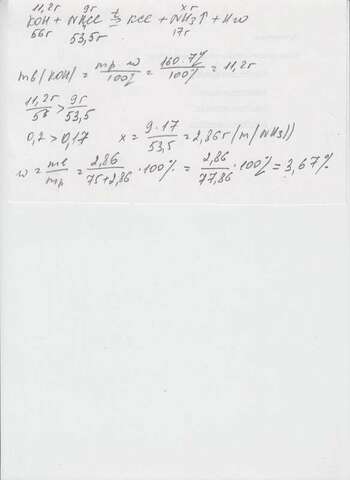 11,2г 9г xг
KOH + NH4Cl t→ KCl + NH3↑ + H2O
56г 53,5г 17г
mв(KOH) = mр·w/100% = 160·7%/100% = 11,2г
11,2г/56 > 9г/53,5
0,2 > 0,17 x = 9·17/53,5 = 2,86г (m(NH3))
w = mв/mр = 2,86/75+2,86 · 100% = 2,86/77,86 · 100% = 3,67%